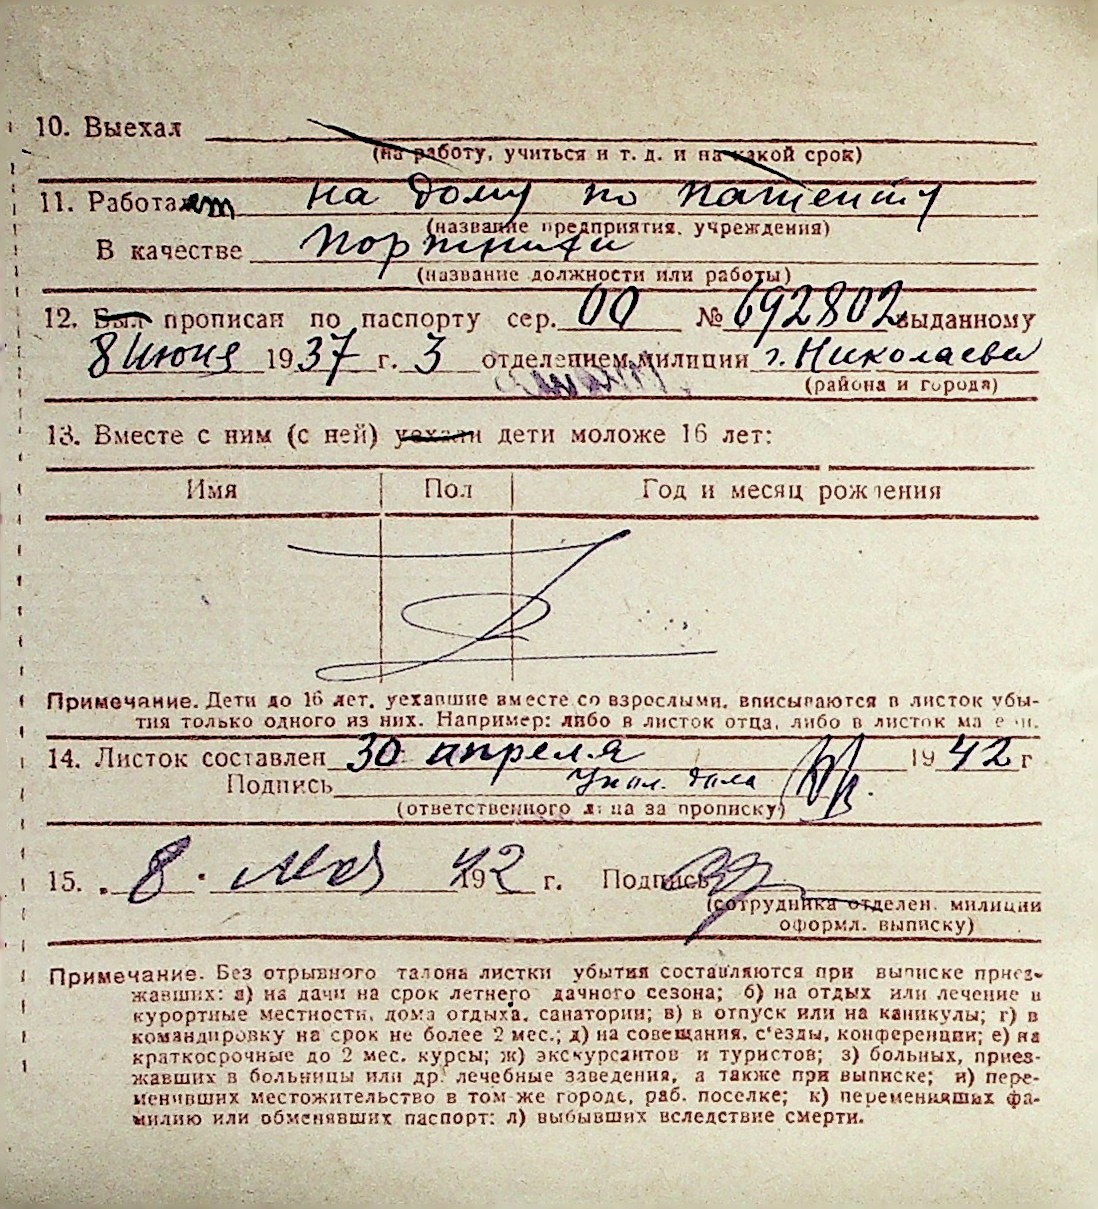 10. Выехал
(на работу, учиться и т. д. и на какой срок)
11. Работает на дому по патенту
(название предприятия, учреждения)
В качестве портнихи
(название должности или работы)
12. Был прописан по паспорту сер. 00 № 692802 выданному
8 июня 1937 г. 3 отделением милиции г. Николаева
(района и города)
13. Вместе с ним (с ней) уехали дети моложе 16 лет:
Имя Пол Год и месяц рождения
Примечание. Дети до 16 лет, уехавшие вместе со взрослыми, вписываются в листок убы-
тия только одного из них. Например: либо в листок отца, либо в листок матери.
14. Листок составлен 30 апреля 1942 г
Подпись Упол. дома
(ответственного лица за прописку)
15. 8. мая 1942 г. Подпись
(сотрудника отделен. милиции
оформл. выписку)
Примечание. Без отрывного талона листки убытия составляются при выписке приез-
жавших: а) на дачи на срок летнего дачного сезона; б) на отдых или лечение в
курортные местности, дома отдыха, санатории; в) в отпуск или на каникулы; г) в
командировку на срок не более 2 мес.; д) на совещания, с'езды, конференции; е) на
краткосрочные до 2 мес. курсы; ж) экскурсантов и туристов; з) больных, приез-
жавших в больницы или др. лечебные заведения, а также при выписке; и) пере-
менивших местожительство в том же городе, раб. поселке; к) переменивших фа-
милию или обменявших паспорт; л) выбывших вследствие смерти.